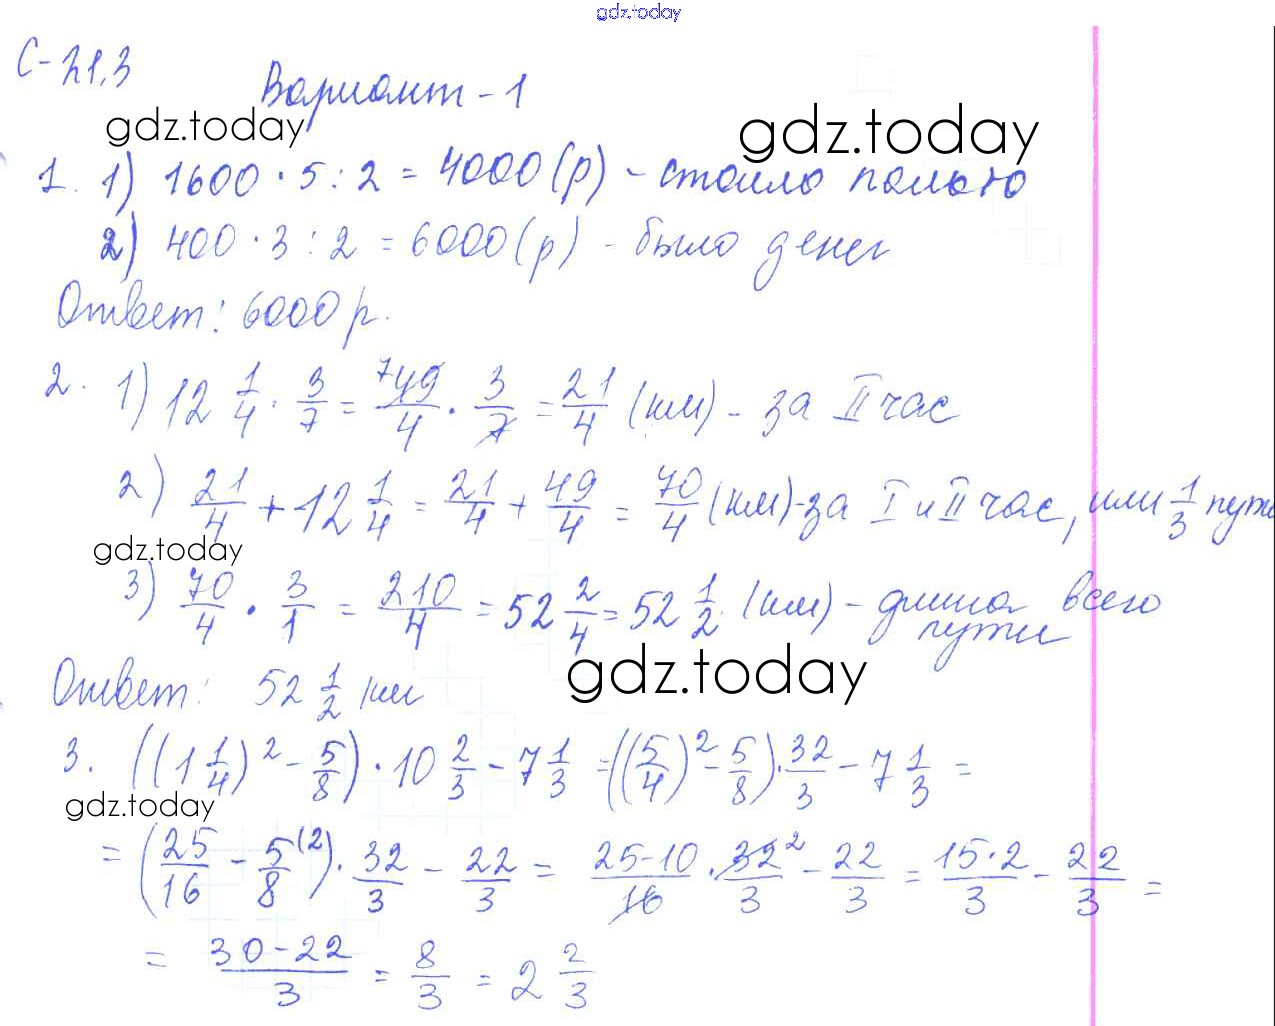 gdz.today
С-21,3
Вариант-1
gdz.today gdz.today
1. 1) 1600 · 5 : 2 = 4000 (р) - стоило пальто
2) 400 · 3 : 2 = 6000 (р) - было денег
Ответ: 6000 р.
2. 1) 12 1/4 : 3/7 = 49/4 · 3/7 = 21/4 (км) - за II час
2) 21/4 + 12 1/4 = 21/4 + 49/4 = 70/4 (км) - за I и II час, или 1/3 пути
gdz.today
3) 70/4 · 3/1 = 210/4 = 52 2/4 = 52 1/2 (км) - длина всего
пути
gdz.today
Ответ: 52 1/2 км
3. ((1 1/4)² - 5/8) · 10 2/3 - 7 1/3 = ((5/4)² - 5/8) · 32/3 - 7 1/3 =
gdz.today
= (25/16 - 5/8 (2) ) · 32/3 - 22/3 = 25-10/16 · 32²/3 - 22/3 = 15·2/3 - 22/3 =
= 30-22/3 = 8/3 = 2 2/3